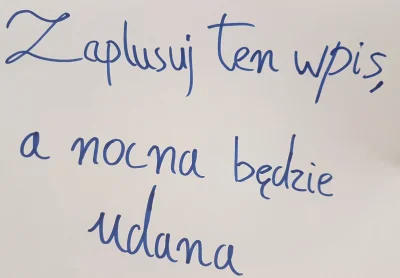 Zaplusuj ten wpis,
a nocna będzie
udana